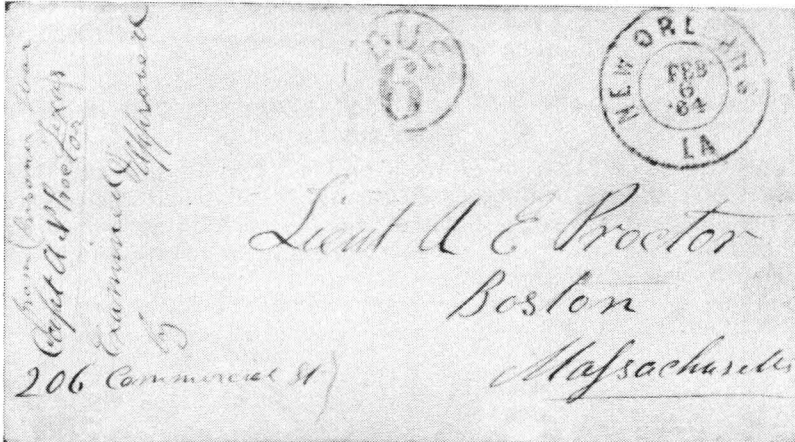 from Prisoner of war
Capt A N Proctor Texas
Examined & Approved
by
DUE
6
NEW ORLEANS
FEB
6
'64
LA
Lieut A E Proctor
Boston
Massachusetts
206 Commercial St